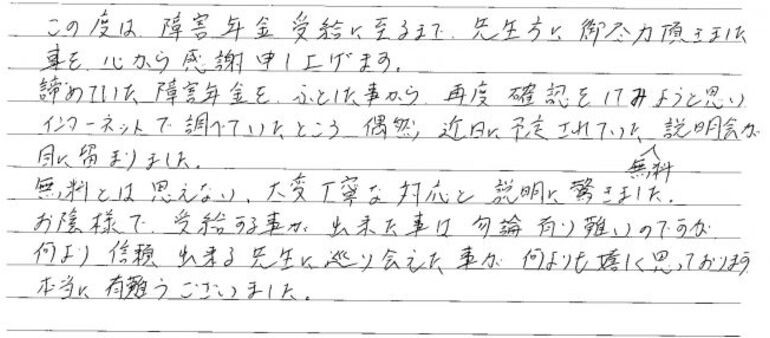 この度は、障害年金 受給に至るまで、先生方に御尽力頂きました
事を、心から感謝申し上げます。
諦めていた障害年金を、ふとした事から、再度確認をしてみようと思い
インターネットで調べていたところ、偶然、近日に予定されていた、説明会が
無料
目に留まりました。
無料とは思えない、大変丁寧な対応と説明に驚きました。
お陰様で、受給する事が、出来た事は勿論有り難いのですが
何より信頼出来る先生に巡り会えた事が、何よりも嬉しく思っております
本当に有難うございました。